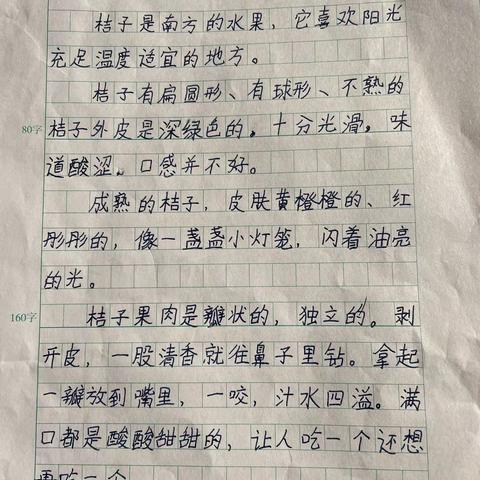 桔子是南方的水果，它喜欢阳光
充足温度适宜的地方。
桔子有扁圆形、有球形、不熟的
80字
桔子外皮是深绿色的。十分光滑，味
道酸涩。口感并不好。
成熟的桔子，皮肤黄橙橙的、红
彤彤的，像一盏盏小灯笼，闪着油亮
的光。
160字
桔子果肉是瓣状的，独立的。剥
开皮，一股清香就往鼻子里钻。拿起
一瓣放到嘴里，一咬，汁水四溢。满
口都是酸酸甜甜的，让人吃一个还想
再吃一个